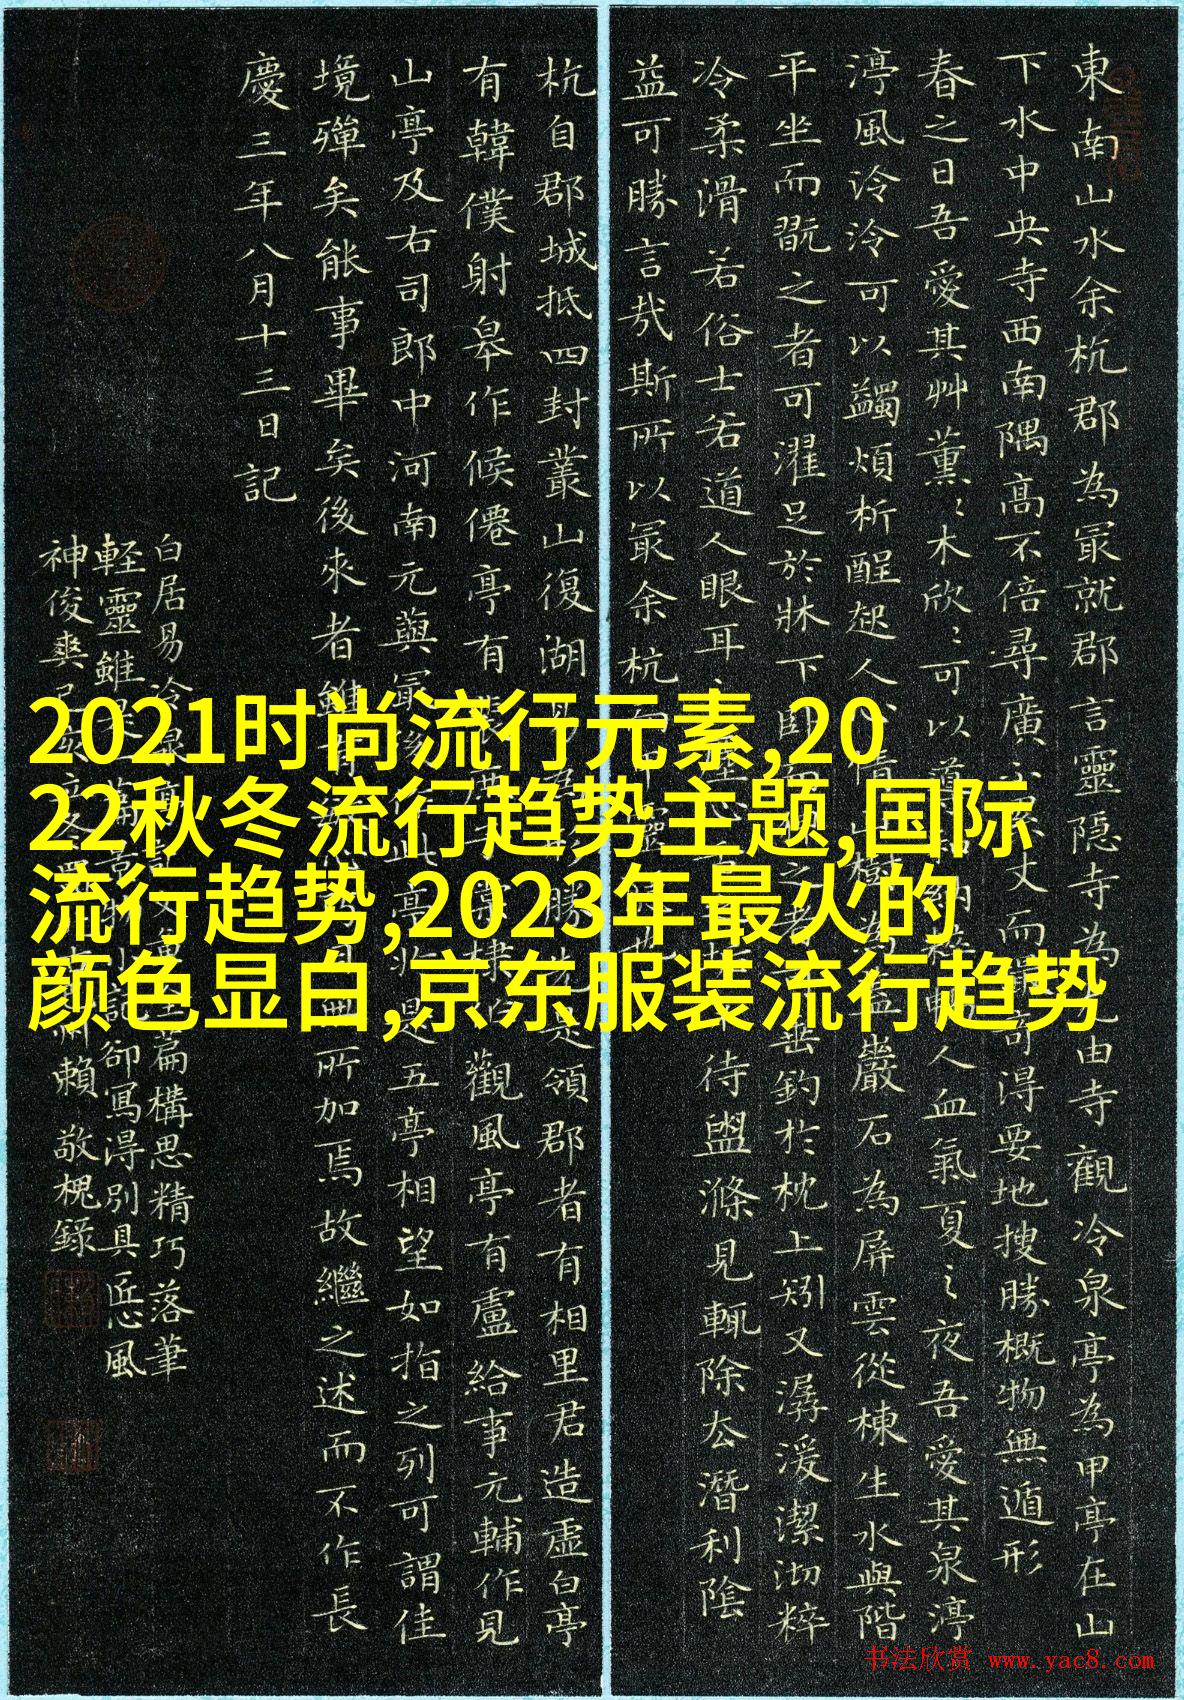 2021时尚流行元素,20
22秋冬流行趋势主题,国际
流行趋势,2023年最火的
颜色显白,京东服装流行趋势
東南山水余杭郡為冣就郡言靈隐寺為由寺觀冷泉亭為甲亭在山
下水中央寺西南隅高不倍尋廣丈而可得要地搜勝概物無遁形
春之日吾愛其艸薰〻木欣〻可以導人血氣夏之夜吾愛其泉渟
渟風泠泠可以蠲煩析酲起人情巖石為屏雲從棟生水與階
平坐而翫之者可濯足於牀下臥之垂釣於枕上矧又潺湲潔沏粹
冷柔滑若俗士若道人眼耳待盥滌見輒除去潛利陰
益可勝言哉斯所以冣余杭
杭自郡城抵四封叢山復湖勝領郡者有相里君造虛白亭
有韓僕射皋作候僊亭有觀風亭有盧給事元輔作見
山亭及右司郎中河南元藇冣此亭是五亭相望如指之列可謂佳
境殫矣能事畢矣後來者雖所加焉故繼之述而不作長
慶三年八月十三日記
白居易冷篇構思精巧落筆
軽靈雖卻寫得別具匠心風
神俊爽賴敬槐錄
书法欣赏 www.yac8.com